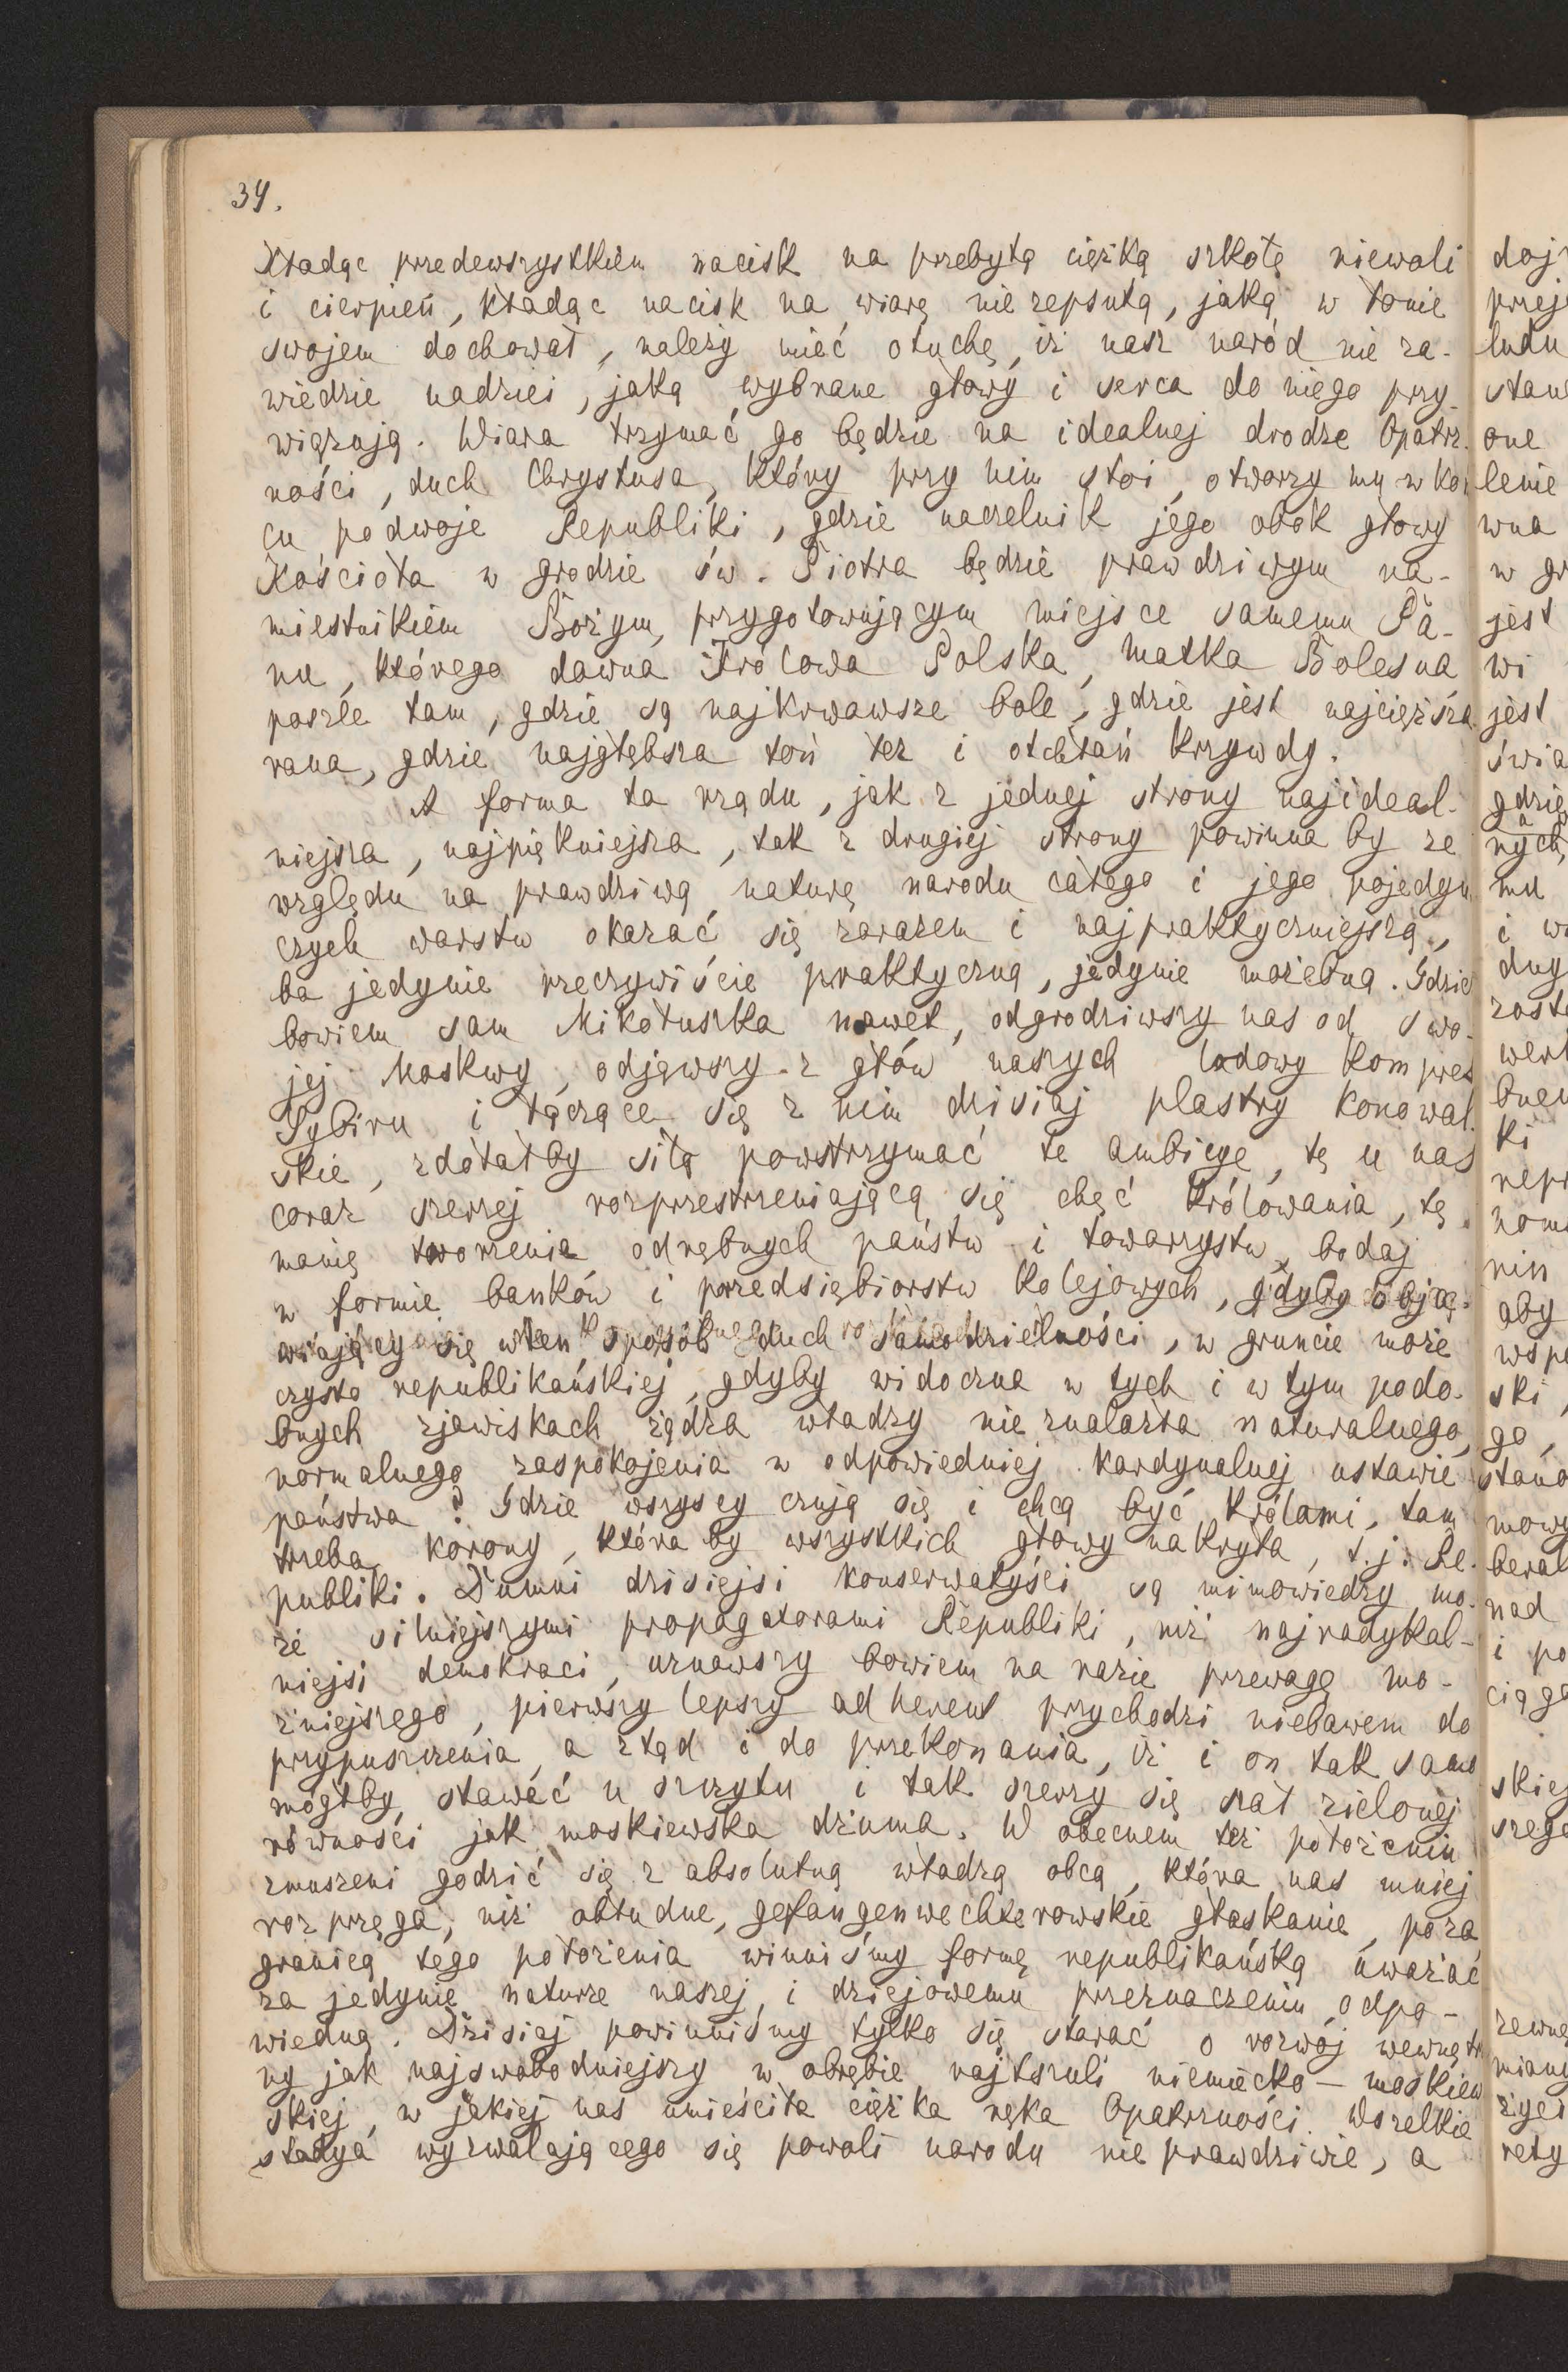 34.
Kładąc przedewszystkiem nacisk na przebytą ciężką szkołę niewoli
i cierpień, kładąc nacisk na wiarę niezepsutą, jaką w łonie
swojem dochował, należy mieć otuchę, iż nasz naród nie za-
wiedzie nadziei, jaką wybrane głowy i serca do niego przy-
wiązują. Wiara trzymać go będzie na idealnej drodze Opatrz-
ności, duch Chrystusa, który przy nim stoi, otworzy mu w koń
cu podwoje Republiki, gdzie naczelnik jego obok głowy
Kościoła w grodzie św. Piotra będzie prawdziwym na-
miestnikiem Bożym, przygotowującym miejsce samemu Pa-
nu, którego dawna Królowa Polska, Matka Bolesna
poszle tam, gdzie są najkrwawsze bole, gdzie jest najcięższa
rana, gdzie najgłębsza toń łez i otchłań krzywdy.
A forma ta rządu, jak z jednej strony najideal-
niejsza, najpiękniejsza, tak z drugiej strony powinna by ze
względu na prawdziwą naturę narodu całego i jego pojedyn
czych warstw okazać się zarazem i najpraktyczniejszą,
ba jedynie rzeczywiście praktyczną, jedynie możebną. Gdzie
bowiem sam Mikołuszka nawet, odgrodziwszy nas od swo-
jej Moskwy, odjąwszy z głów naszych lodowy kompres
Sybiru i łączące się z nim dzisiaj plastry konował-
skie, zdołałby siłą powstrzymać te ambicye, tę u nas
coraz szerzej rozprzestrzeniającą się chęć królowania, tę
manię tworzenia odrębnych państw i towarzystw, bodaj
w formie banków i przedsiębiorstw kolejowych, gdyby obja-
wiający się w ten sposób duch samodzielności, w gruncie może
czysto republikańskiej, gdyby widoczna w tych i w tym podo-
bnych zjawiskach żądza władzy nie znalazła naturalnego,
normalnego zaspokojenia w odpowiedniej kardynalnej ustawie
państwa? Gdzie wszyscy czują się i chcą być królami, tam
trzeba korony, która by wszystkich głowy nakryła, t.j. Re-
publiki. Dumni dzisiejsi konserwatyści są mimowiedzy mo-
że silniejszymi propagatorami Republiki, niż najradykal-
niejsi demokraci, uznawszy bowiem na razie przewagę mo-
żniejszego, pierwszy lepszy adherent przychodzi niebawem do
przypuszczenia, a ztąd i do przekonania, iż i on tak samo
mógłby stawać u szczytu i tak szerzy się szał zielonej
równości jak moskiewska dżuma. W obecnem też położeniu
zmuszeni godzić się z absolutną władzą obcą, która nas mniej
rozprzęga, niż obłudne, gefangenwechterowskie głaskanie, poza
granicą tego położenia winniśmy formę republikańską uważać
za jedynie naturze naszej i dziejowemu przeznaczeniu odpo-
wiedną. Dzisiaj powinniśmy tylko się starać o rozwój wewnętrz
ny jak najswobodniejszy w obrębie najtszuli niemiecko – moskiew
skiej, w jakiej nas umieściła ciężka ręka Opatrzności. Wszelkie
stadya wyzwalającego się powoli narodu nieprawdziwie, a